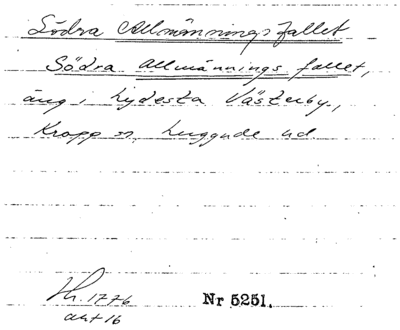 Södra Allmänningsfallet
Södra Allmännings fallet,
äng i Lydesta Västerby.,
Kropp sn, Luggude hd.
1776
akt 16
Nr 5251.